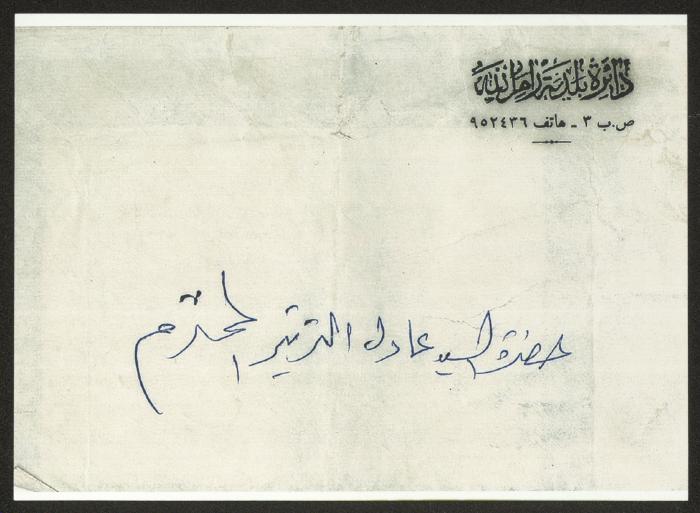 دائرة بلدية رام الله
ص.ب ٣ - هاتف ٩٥٢٤٣٦
حضرة السيد عادل الترتير المحترم